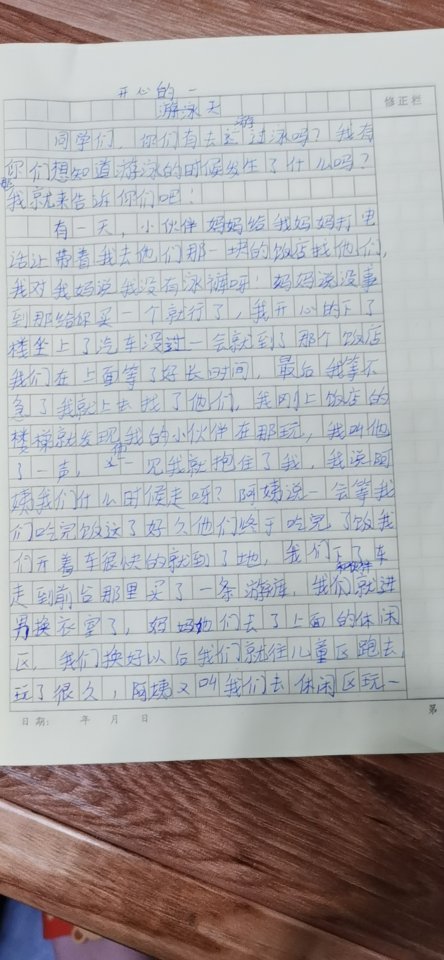 开心的一
游泳天
修正栏
同学们，你们有去过游泳吗？我有
你们想知道游泳的时候发生了什么吗？
那我就来告诉你们吧！
有一天，小伙伴妈妈给我妈妈打电
话让带着我去他们那一块的饭店找他们，
我对我妈说我没有泳裤呀！妈妈说没事
到那给你买一个就行了，我开心的下了
楼坐上了汽车没过一会就到了那个饭店
我们在上面等了好长时间，最后我等不
急了我就上去找了他们，我刚上饭店的
楼梯就发现我的小伙伴在那玩，我叫他
了一声，他一见我就抱住了我，我说阿
姨我们什么时候走呀？阿姨说一会等我
们吃完饭这了好久他们终于吃完了饭我
们开着车很快的就到了地，我们下了车
走到前台那里买了一条游裤，我们就进
男换衣室了，妈妈他们去了上面的休闲
区，我们换好以后我们就往儿童区跑去
玩了很久，阿姨又叫我们去休闲区玩一
日期： 年 月 日
第